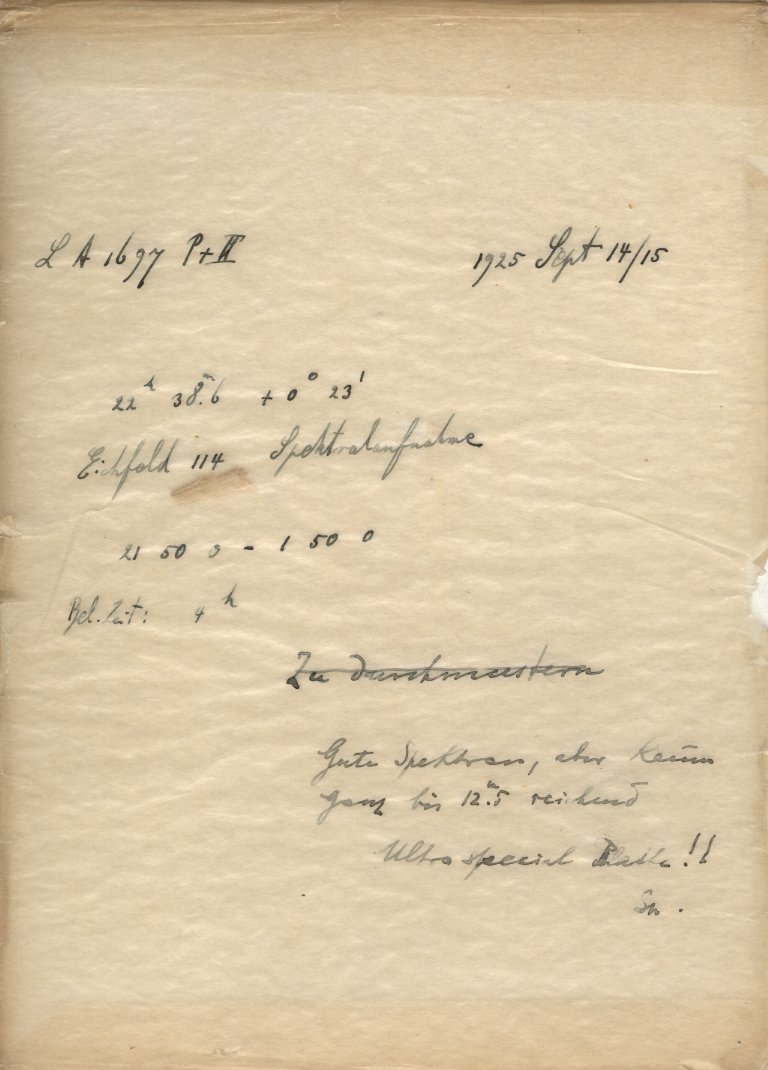 L A 1697 P+III 1925 Sept 14/15
22ʰ 38ᵐ.6 +0° 23'
Eichfeld 114 Spektralaufnahme
21 50 0 - 1 50 0
Bel. Zeit: 4ʰ
Zu durchmustern
Gute Spektren, aber kaum
ganz bis 12ᵐ.5 reichend
Ultra special Platte!!